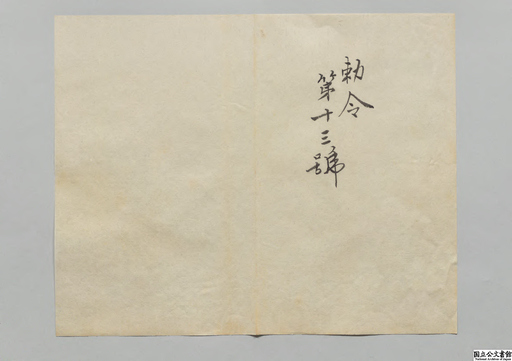 勅令
第十三號
国立公文書館
National Archives of Japan